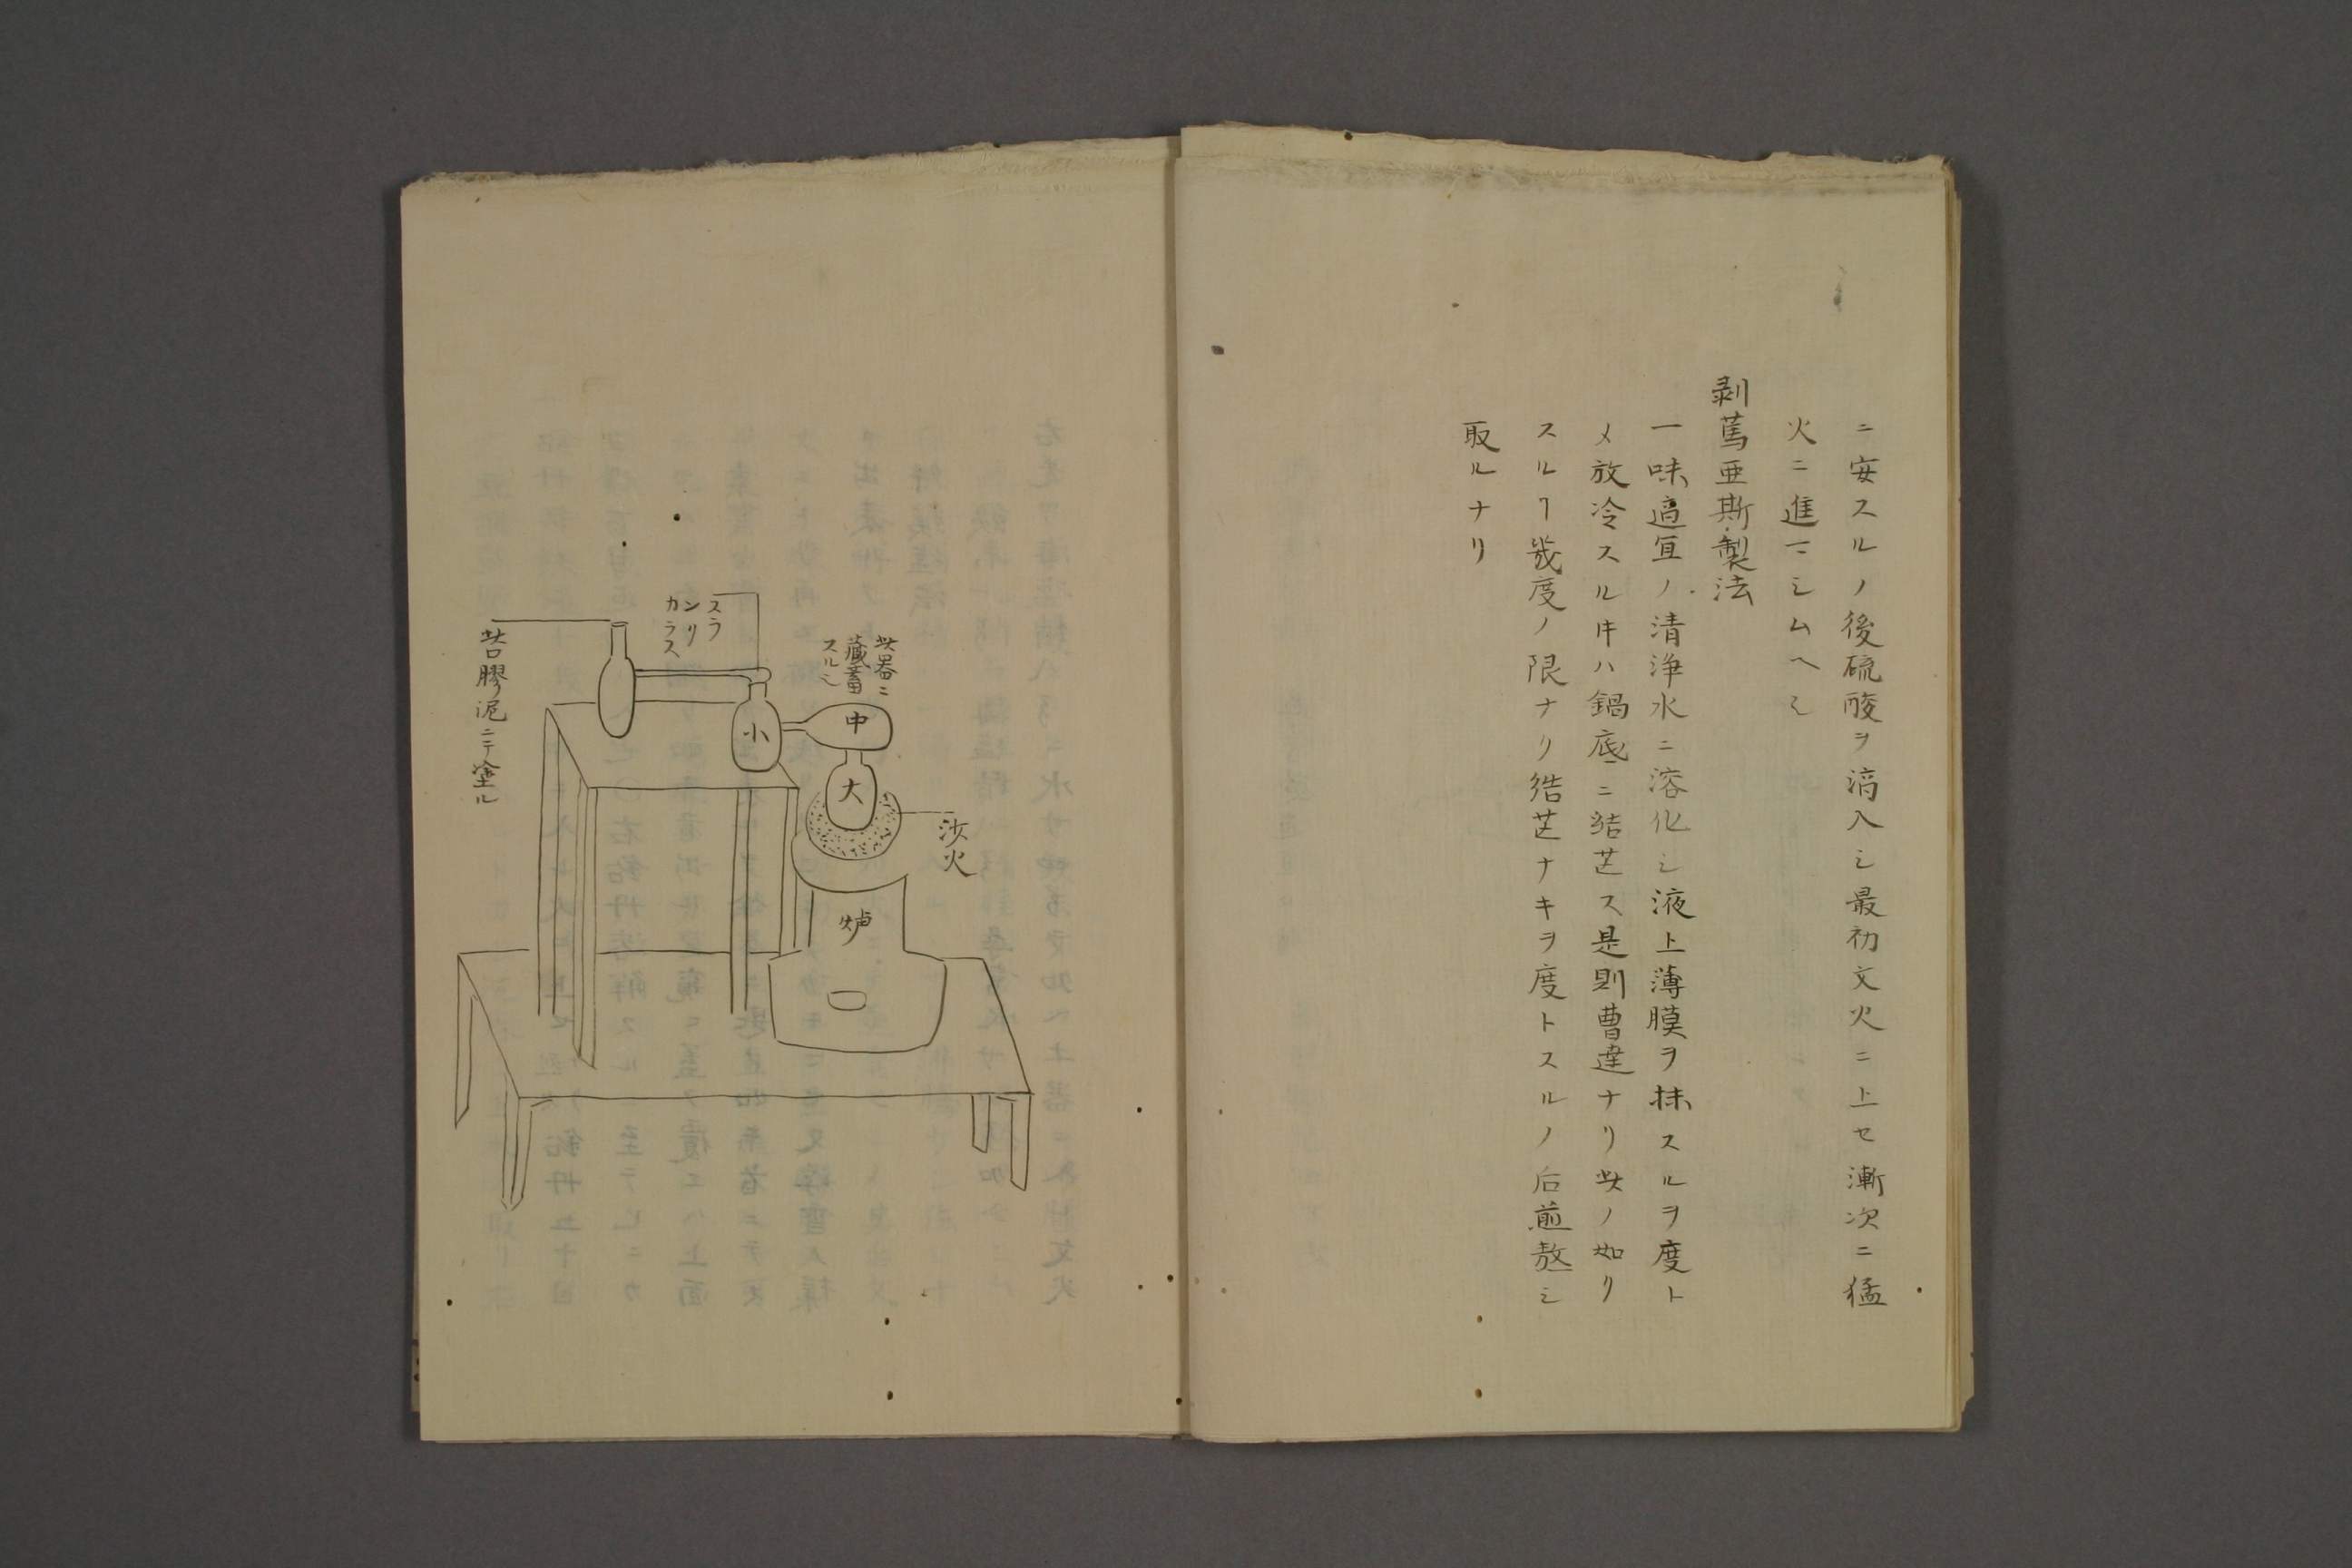 ニ安スルノ後硫酸ヲ滴入シ最初文火ニ上セ漸次ニ猛
火ニ進マシムヘシ
剥篤亜斯製法
一味適宜ノ清浄水ニ溶化シ液上薄膜ヲ抹スルヲ度ト
メ放冷スル𪜈ハ鍋底ニ結芒ス是則曹達ナリ此ノ如リ
スルヿ幾度ノ限ナリ結芒ナキヲ度トスルノ后煎熬シ
取ルナリ
此器ニ
藏蓄
スルシ
スラ
ンリ
カラス
此口膠泥ニテ塗ル
小
中
大
沙火
炉